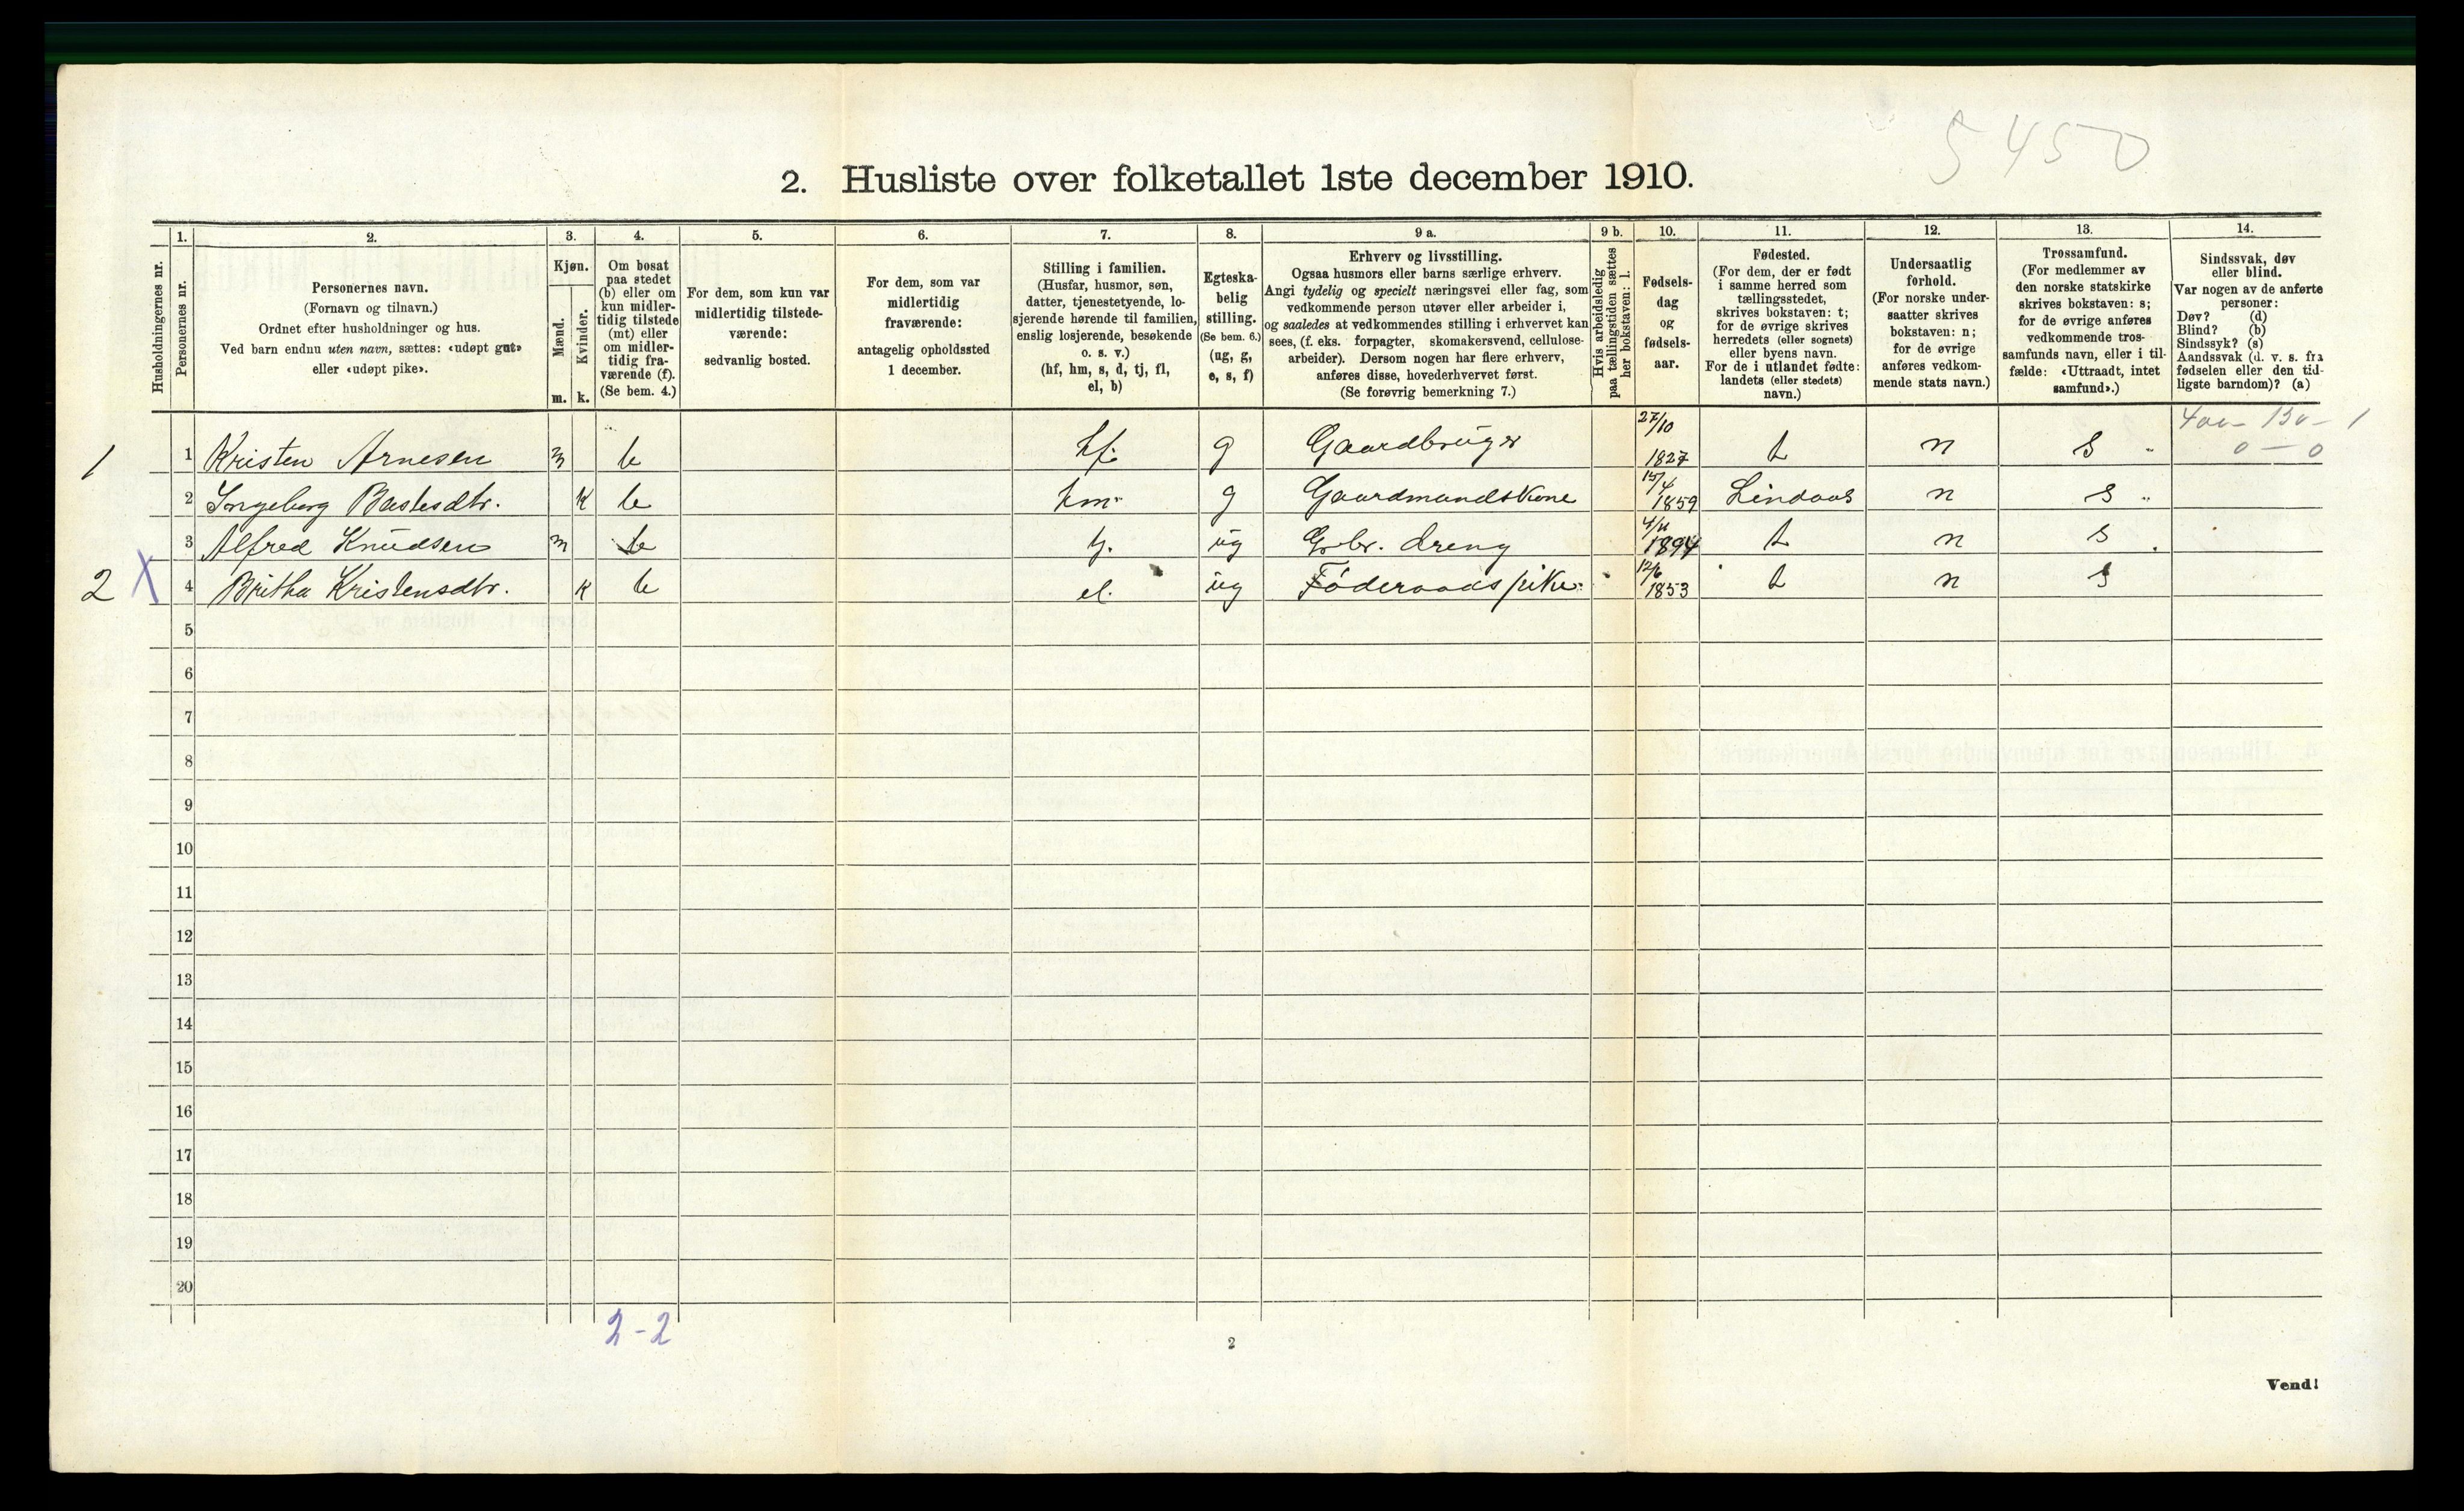 5450
2. Husliste over folketallet 1ste december 1910.
Husholdningernes nr.
1.
Personernes nr.
2.
Personernes navn.
(Fornavn og tilnavn.)
Ordnet efter husholdninger og hus.
Ved barn endnu uten navn, sættes: «udøpt gut»
eller «udøpt pike».
3.
Kjøn.
Mænd.
Kvinder.
m. k.
4.
Om bosat
paa stedet
(b) eller om
kun midler-
tidig tilstede
(mt) eller
om midler-
tidig fra-
værende (f).
(Se bem. 4.)
5.
For dem, som kun var
midlertidig tilstede-
værende:
sedvanlig bosted.
6.
For dem, som var
midlertidig
fraværende:
antagelig opholdssted
1 december.
7.
Stilling i familien.
(Husfar, husmor, søn,
datter, tjenestetyende, lo-
sjerende hørende til familien,
enslig losjerende, besøkende
o. s. v.)
(hf, hm, s, d, tj, fl,
el, b)
8.
Egteska-
belig
stilling.
(Se bem. 6.)
(ug, g,
e, s, f)
9 a.
Erhverv og livsstilling.
Ogsaa husmors eller barns særlige erhverv.
Angi tydelig og specielt næringsvei eller fag, som
vedkommende person utøver eller arbeider i,
og saaledes at vedkommendes stilling i erhvervet kan
sees, (f. eks. forpagter, skomakersvend, cellulose-
arbeider). Dersom nogen har flere erhverv,
anføres disse, hovederhvervet først.
(Se forøvrig bemerkning 7.)
9 b.
Hvis arbeidsledig
paa tællingstiden sættes
her bokstaven: l.
10.
Fødsels-
dag
og
fødsels-
aar.
11.
Fødested.
(For dem, der er født
i samme herred som
tællingsstedet,
skrives bokstaven: t;
for de øvrige skrives
herredets (eller sognets)
eller byens navn.
For de i utlandet fødte:
landets (eller stedets)
navn.)
12.
Undersaatlig
forhold.
(For norske under-
saatter skrives
bokstaven: n;
for de øvrige
anføres vedkom-
mende stats navn.)
13.
Trossamfund.
(For medlemmer av
den norske statskirke
skrives bokstaven: s;
for de øvrige anføres
vedkommende tros-
samfunds navn, eller i til-
fælde: «Uttraadt, intet
samfund».)
14.
Sindssvak, døv
eller blind.
Var nogen av de anførte
personer:
Døv? (d)
Blind? (b)
Sindssyk? (s)
Aandssvak (d. v. s. fra
fødselen eller den tid-
ligste barndom)? (a)
1 1 Kristen Arnesen m b hf. g Gaardbruger 27/10 1827 t n s
0 - 0
2 Ingeborg Bastesdtr. k b hm. g Gaardmandskone 15/4 1859 Lindaas n s
3 Alfred Knudsen m b tj. ug Grbr. dreng 4/11 1894 t n s
2 X 4 Britha Kristensdtr. k b el. ug Føderaadspike 12/6 1853 t n s
5
6
7
8
9
10
11
12
13
14
15
16
17
18
19
20
2-2
2
Vend!